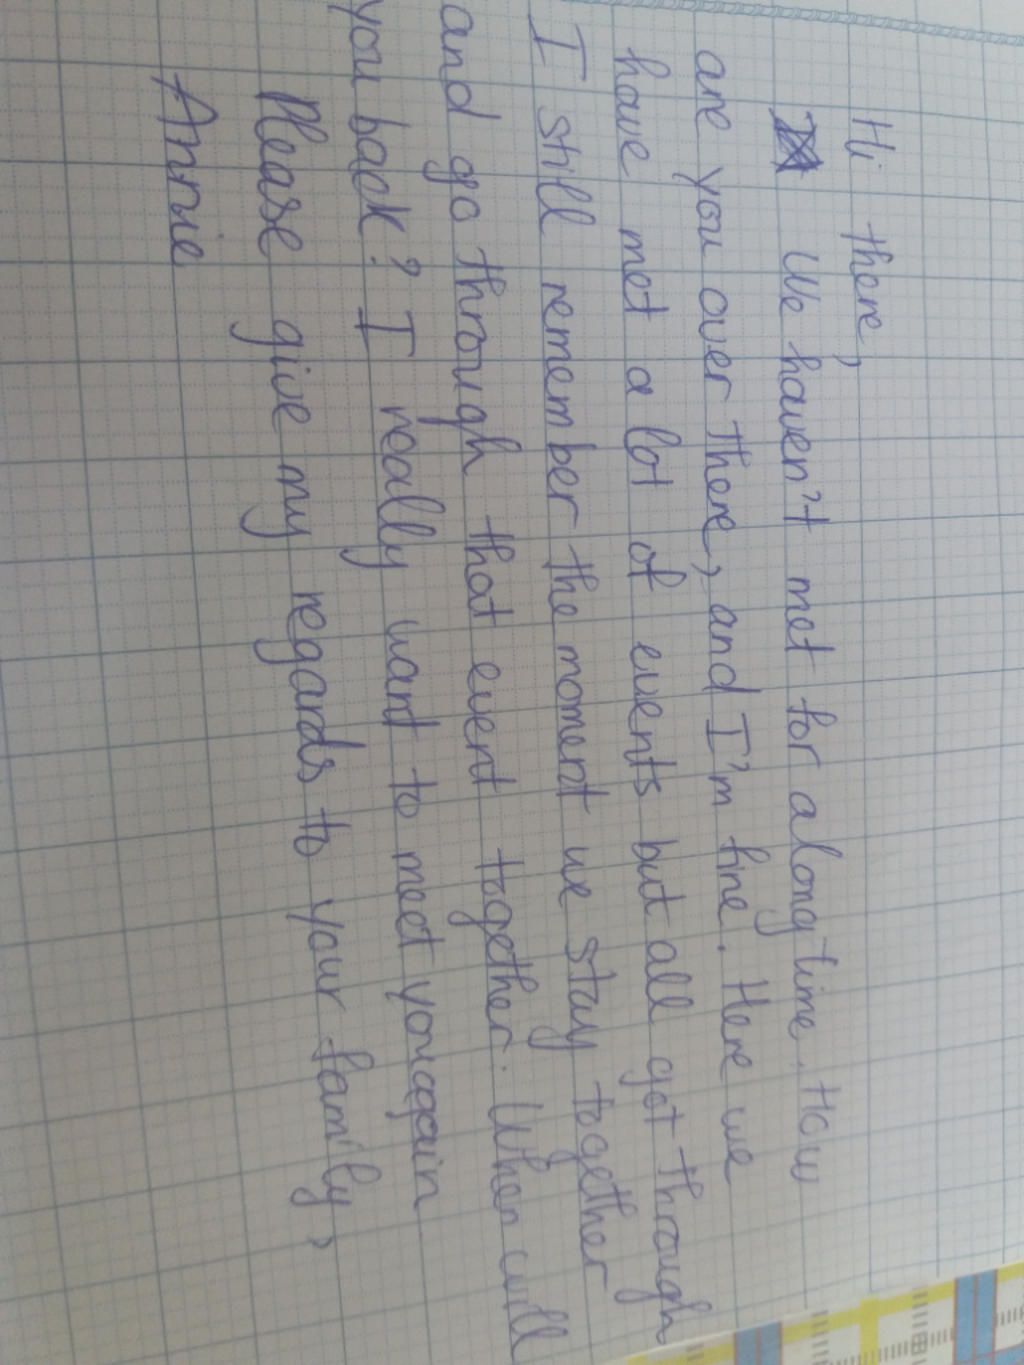 Hi there,
We haven't met for a long time. How
are you over there, and I'm fine. Here we
have met a lot of events but all got through
I still remember the moment we stay together
and go through that event together. When will
you back? I really want to meet you again
Please give my regards to your family,
Annie